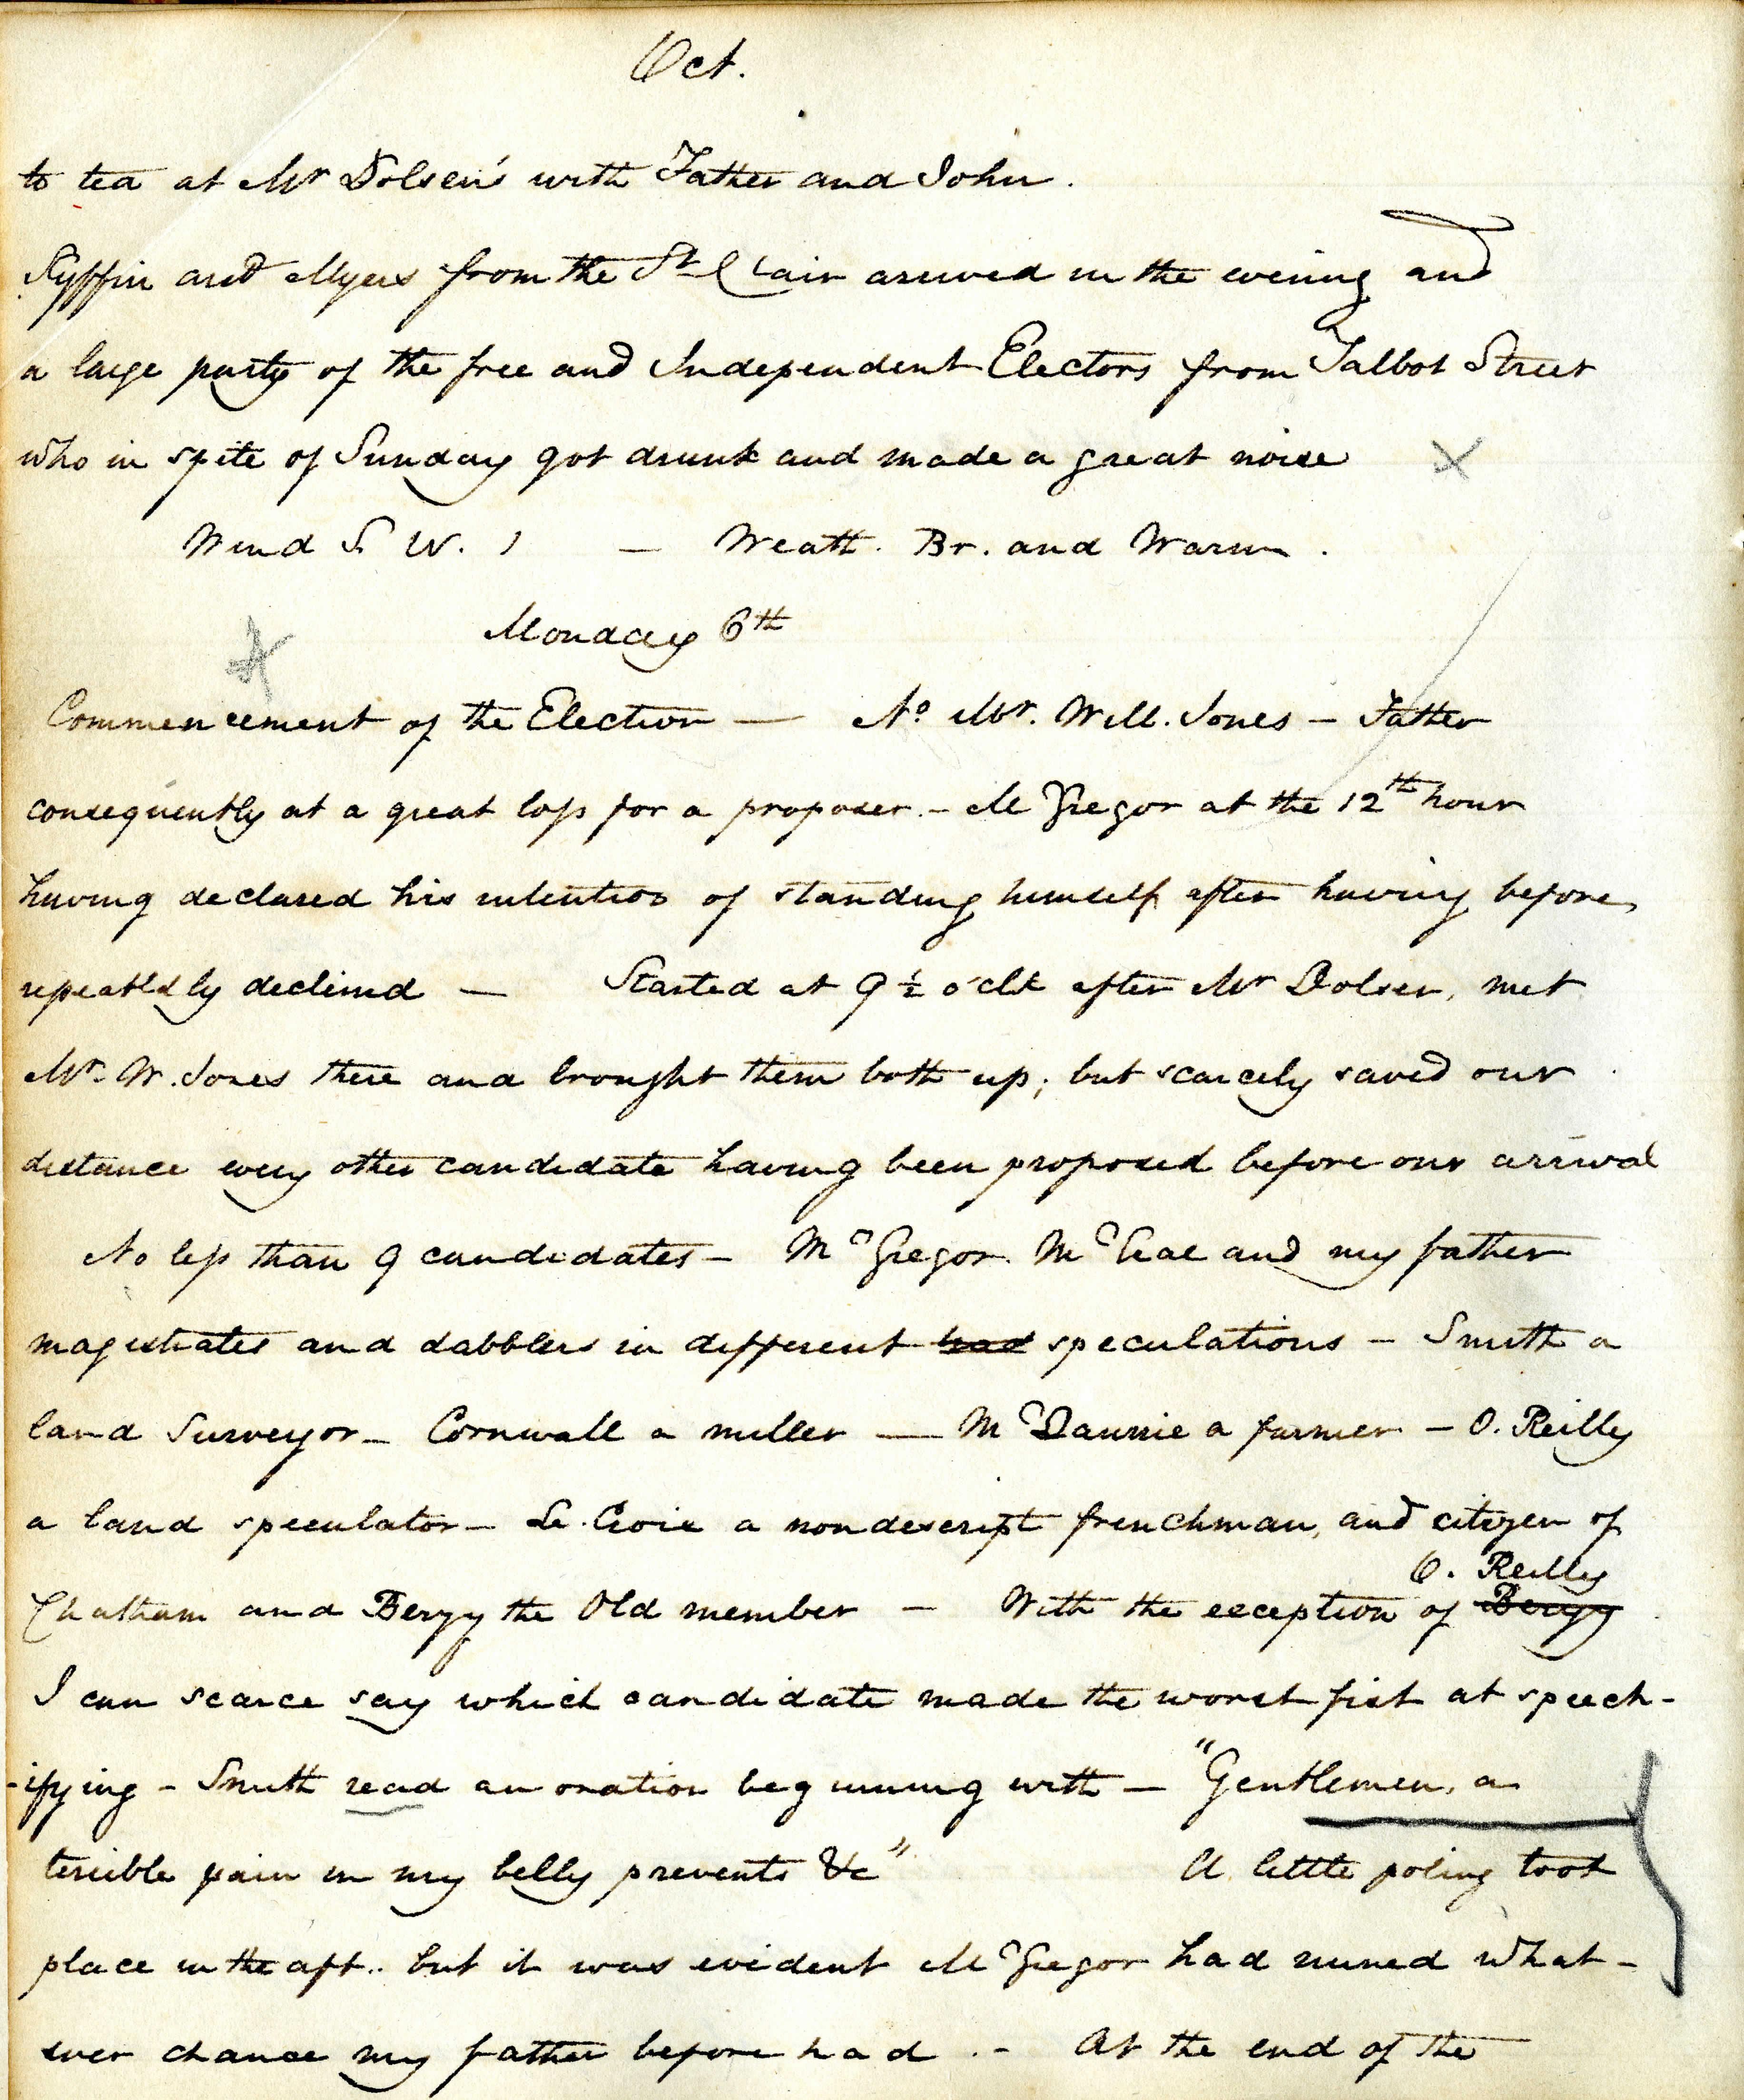 Oct.
to tea at Mr Dolsen's with Father and John.
Kyffin and Myers from the St Clair arrived in the evening and
a large party of the free and Independent Electors from Talbot Street
who in spite of Sunday got drunk and made a great noise X
Wind S W. 1 — Weath. Br. and Warm.
Monday 6th
Commencement of the Election — No Mr. Will. Jones — Father
consequently at a great loss for a proposer. — McGregor at the 12th hour
having declared his intention of standing himself after having before
repeatedly declined — Started at 9½ o'clk after Mr Dolsen, met
Mr. W. Jones there and brought them both up; but scarcely saved our
distance every other candidate having been proposed before our arrival
No less than 9 candidates — McGregor. McCrae and my father
magistrates and dabblers in different had speculations — Smith a
land Surveyor — Cornwall a miller — a farmer — O. Reilly
a land speculator — Le. Croix a nondescript frenchman, and citizen of
O. Reilly
Chatham and Berzy the Old member — With the exception of Berzy
I can scarce say which candidate made the worst fist at speech-
-ifying — Smith read an oration beginning with — "Gentlemen, a
terrible pain in my belly prevents &c" A little poling took
place in the aft.. but it was evident McGregor had ruined what-
ever chance my father before had. — At the end of the